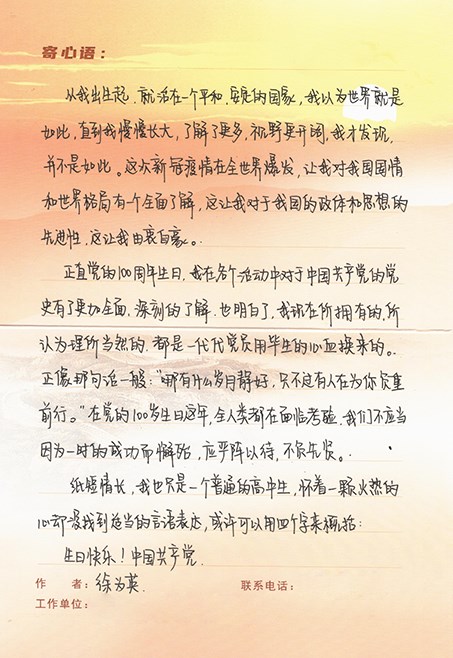 寄心语：
从我出生起，就活在一个平和、安定的国家，我以为世界就是
如此，直到我慢慢长大，了解了更多，视野更开阔，我才发现，
并不是如此。这次新冠疫情在全世界爆发，让我对我国国情
和世界格局有个全面了解，这让我对于我国的政体和思想的
先进性，这让我由衷自豪。
正直党的100周年生日，我在各个活动中对于中国共产党的党
史有了更加全面、深刻的了解，也明白了，我现在所拥有的，所
认为理所当然的，都是一代代党员用毕生的心血换来的。
正像那句话一般：“哪有什么岁月静好，只不过有人在为你负重
前行。”在党的100岁生日这年，全人类都在面临考验，我们不应当
因为一时的成功而懈殆，应严阵以待，不负先贤。
纸短情长，我也只是一个普通的高中生，怀着一颗火热的
心却没找到恰当的言语表达，或许可以用四个字来概括：
生日快乐！中国共产党
作 者：徐为英 联系电话：
工作单位：